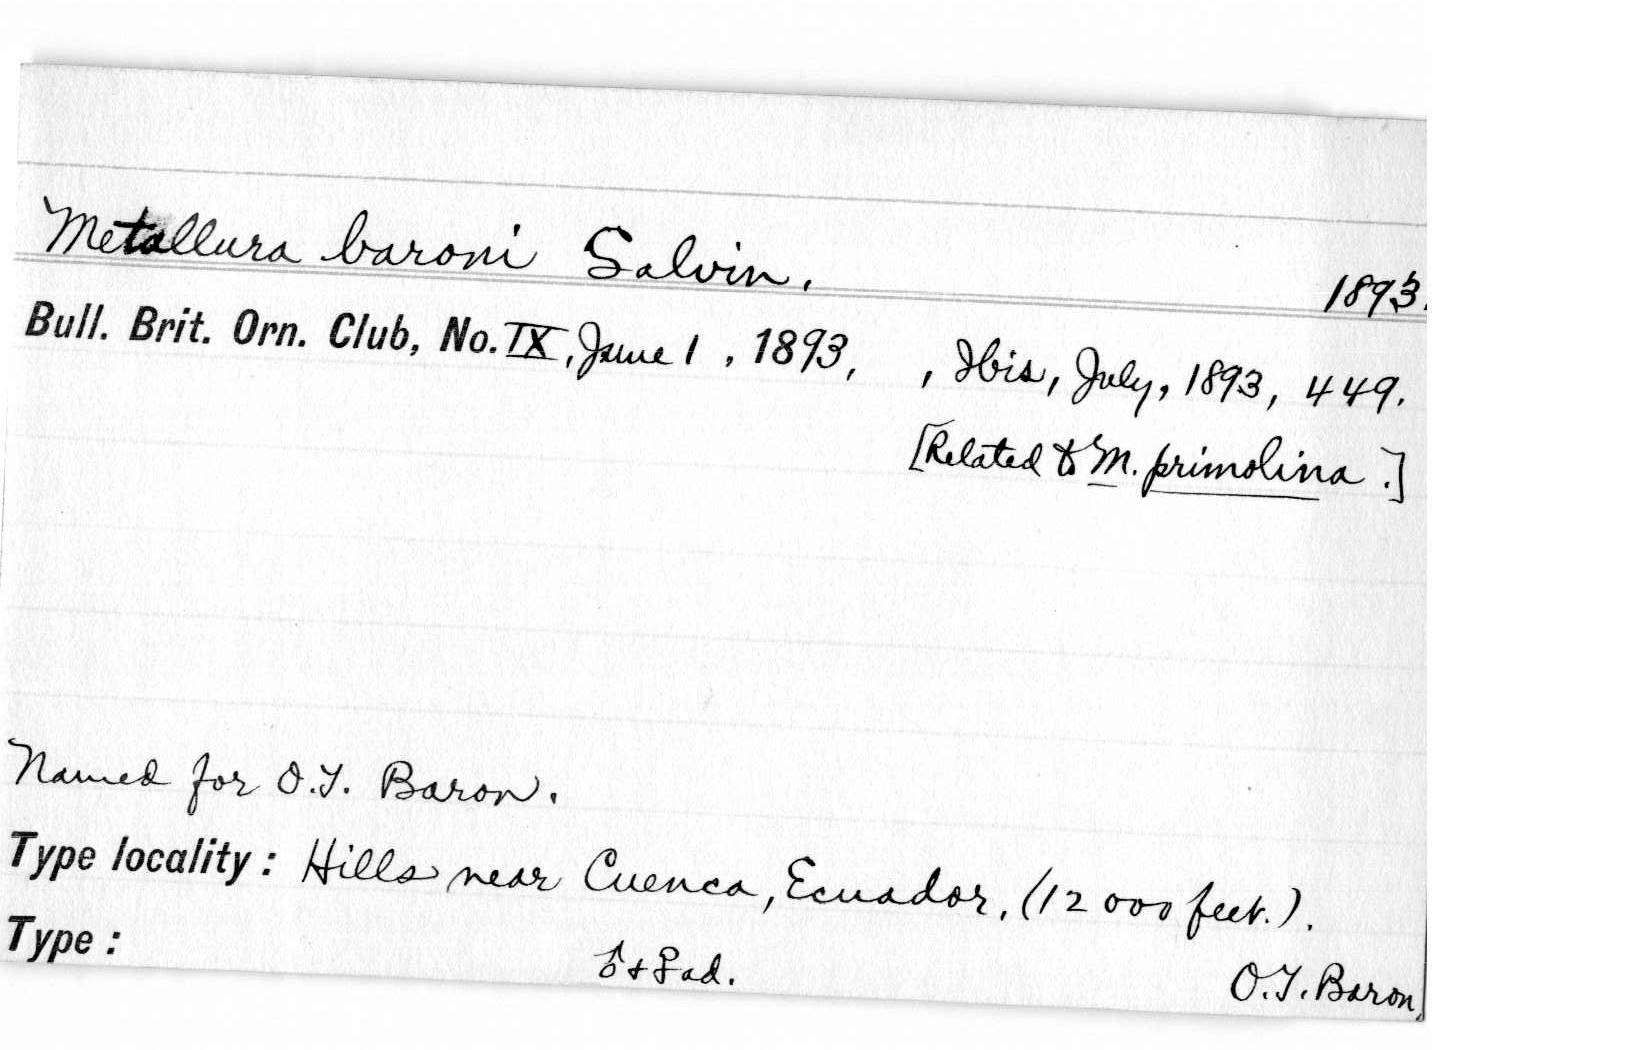 Metallura baroni Salvin. 1893.
Bull. Brit. Orn. Club, No. IX, June 1, 1893, , Ibis, July, 1893, 449.
[Related to M. primolina.]
Named for O.T. Baron.
Type locality: Hills near Cuenca, Ecuador, (12 000 feet.).
Type: ♂ + ♀ ad. O.T. Baron,